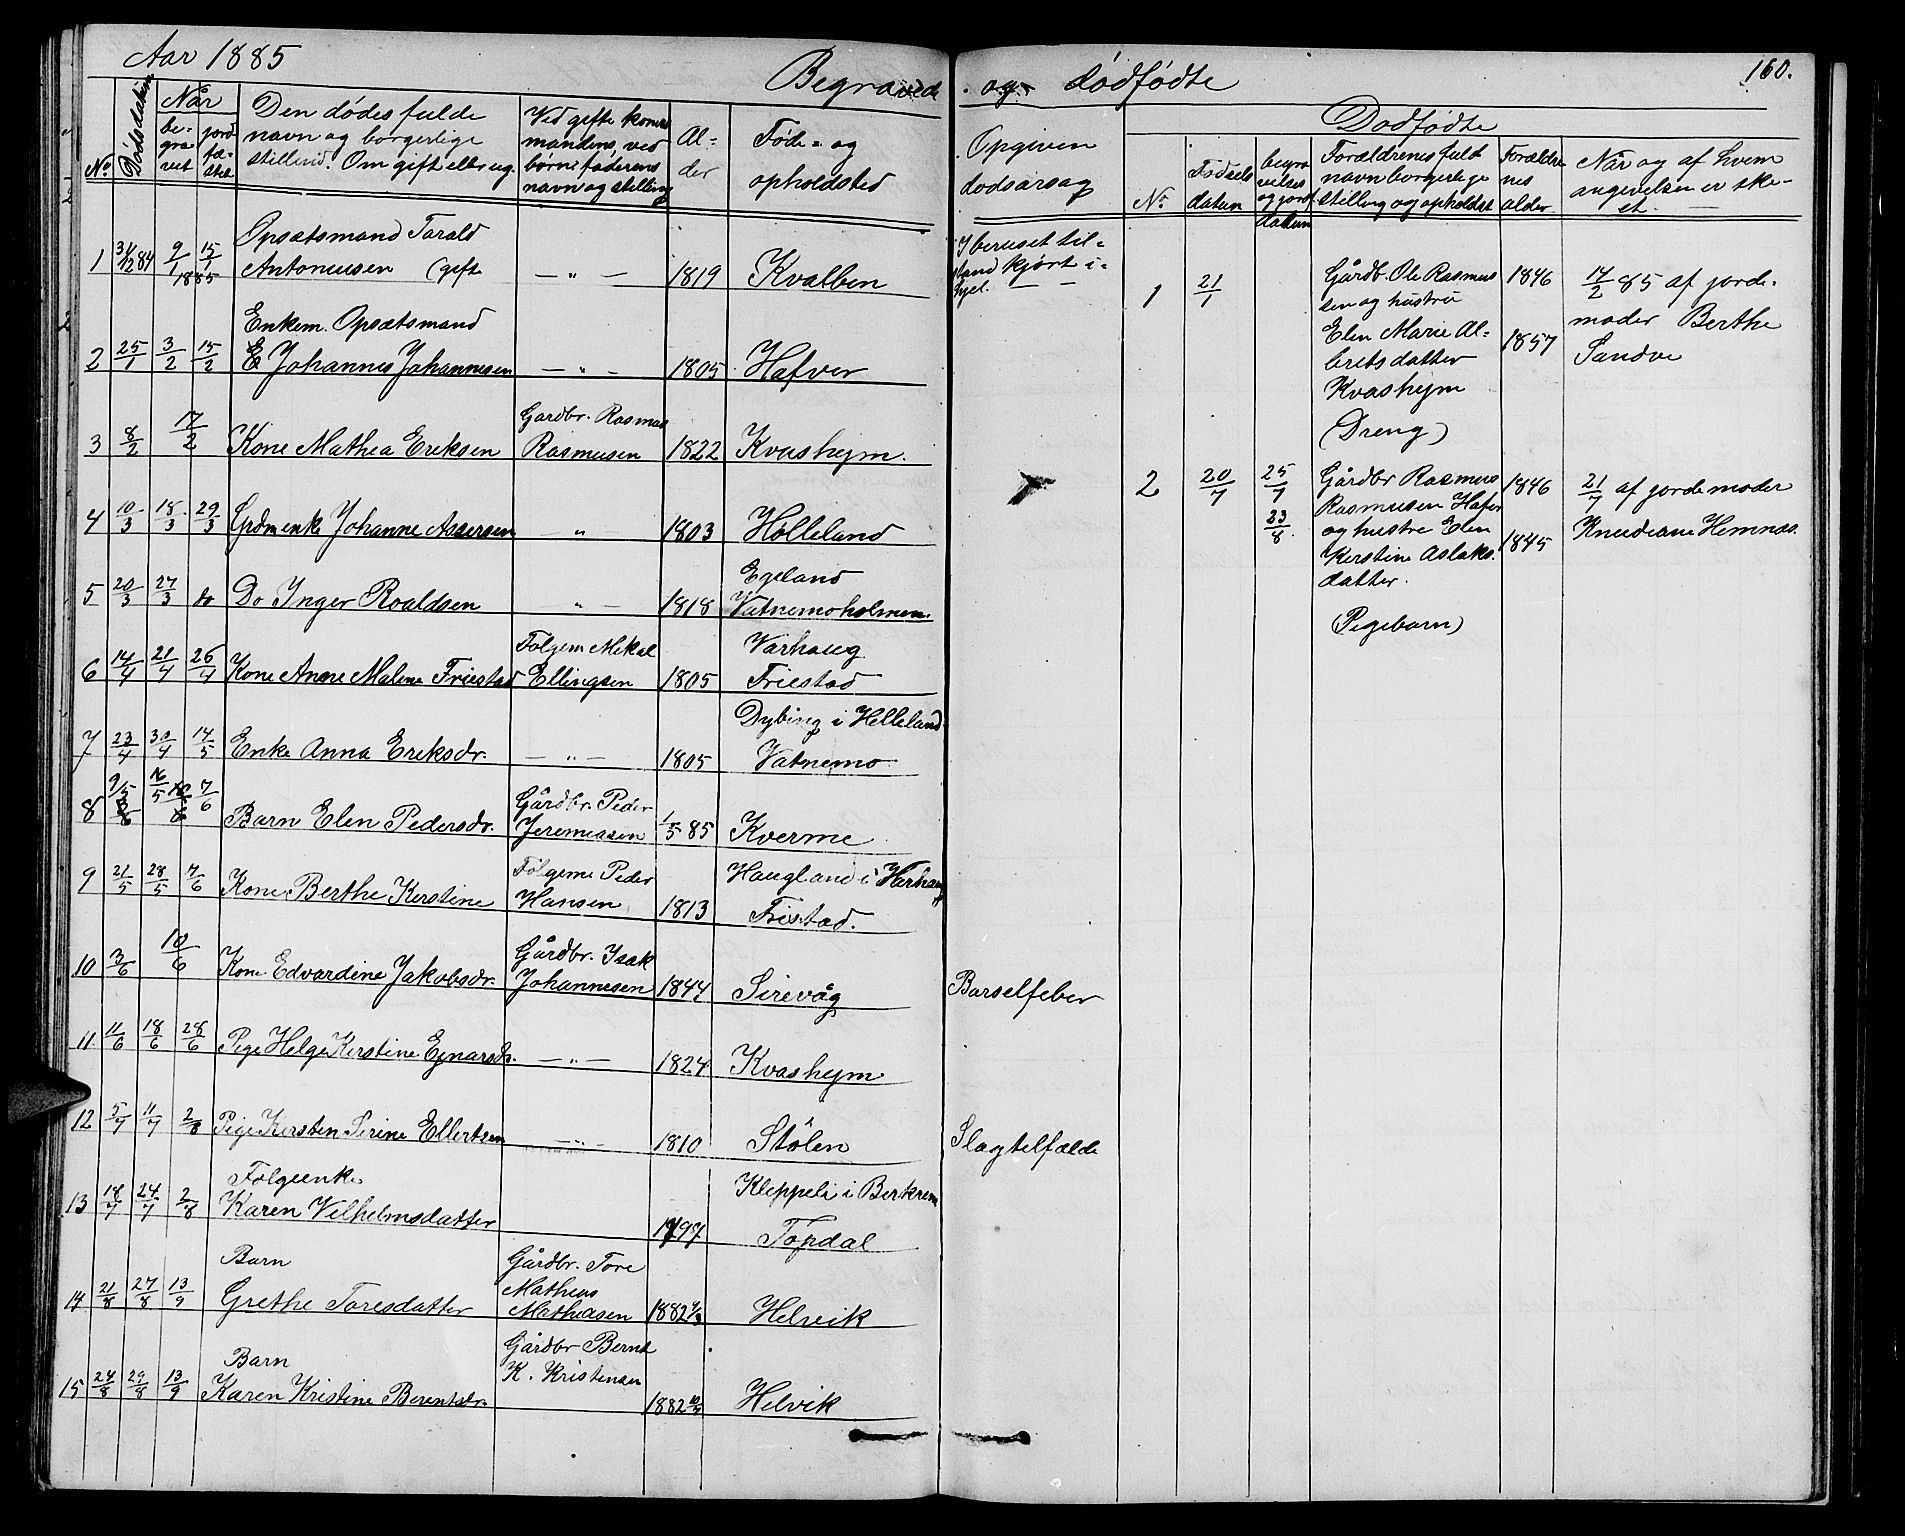 Aar 1885
Begravede og dødfødte
160.
No
Dødsdatum
Når
be-
gra-
vet
jord
fæ-
stet
Den dødes fulde
navn og borgerlige
stilling. Om gift eller ug.
Ved gifte koner
mandens, ved
børn faderens
navn og stilling
Al-
der
Føde- og
opholdsted
Opgiven
dødsårsag
Dødfødte
No
Fødsels
datum
begra
velses
og jordf.
datum
Forældrenes fulde
navn borgerlige
stilling og opholdst.
Forældre
nes
alder
Når og af hvem
angivelsen er ske-
et.
1 31/12 84 9/1 1885 15/1 Opsætsmand Tarald
Antoniusen (gift — " — 1819 Kvalben
I beruset til-
stand kjørt i-
hjel. — —
2 25/1 3/2 15/2 Enkem. Opsætsmand
E Johannes Johannesen — " — 1805 Hafver
3 8/2 17/2 Kone Mathea Eriksen
Gardbr. Rasmus
Rasmusen 1822 Kvashejm.
4 10/3 18/3 29/3 Grdmenk. Johanne Assersen — " 1803 Hølleland
5 20/3 27/3 do Do Inger Roaldsen — " — 1818
Egeland
Vatnemoholmen
6 14/4 21/4 26/4 Kone Anne Malene Friestad
Følgem Mikal
Ellingsen 1805
Varhaug
Friestad
7 23/4 30/4 14/5 Enke Anna Eriksdr. — " — 1805
Dybing i Helleland
Vatnemo
8 9/5 16/5 7/6 Barn Elen Pedersdr.
Gårdbr. Peder
Jeremiasen 1/5 85 Kverme
9 21/5 28/5 7/6 Kone Berthe Kerstine
Følgem Peder
Hansen 1813
Haugland i Varhaug
Fristad.
10 3/6 10/6 Kone Edvardine Jakobsdr.
Gårdbr. Isak
Johannesen 1844 Sirevåg Barselfeber
11 11/6 18/6 28/6 Pige Helge Kerstine Ejnarsdr. — " — 1824 Kvashejm
12 5/7 11/7 2/8 Pige Kersten Serine Ellertsen — " — 1810 Stølen Slagtilfælde
13 18/7 24/7 2/8 Følgeenke
Karen Vilhelmsdatter 1797
Kleppeli i Berkrem
Topdal
14 21/8 27/8 13/9 Barn
Grethe Toresdatter
Gårdbr. Tore
Matheus
Matheasen 1882 9/3 Helvik
15 24/8 29/8 13/9 Barn
Karen Kristine Berentsdr.
Gårdbr Bernt
K. Kristensen
1882 Helvik
1 21/1
Gårdb. Ole Rasmus
sen og hustru
Elen Marie Al-
bretsdatter
Kvashejm
(Dreng)
1846
1857
17/2 85 af jorde-
moder Berthe
Sandve
2 20/7
25/7
23/8
Gårdbr Rasmus
Rasmusen Hafver
og hustre Elen
Kerstine Aslaks-
datter.
(Pigebarn)
1846
1845
21/7 af jordemoder
Knudiane Hemnæs.